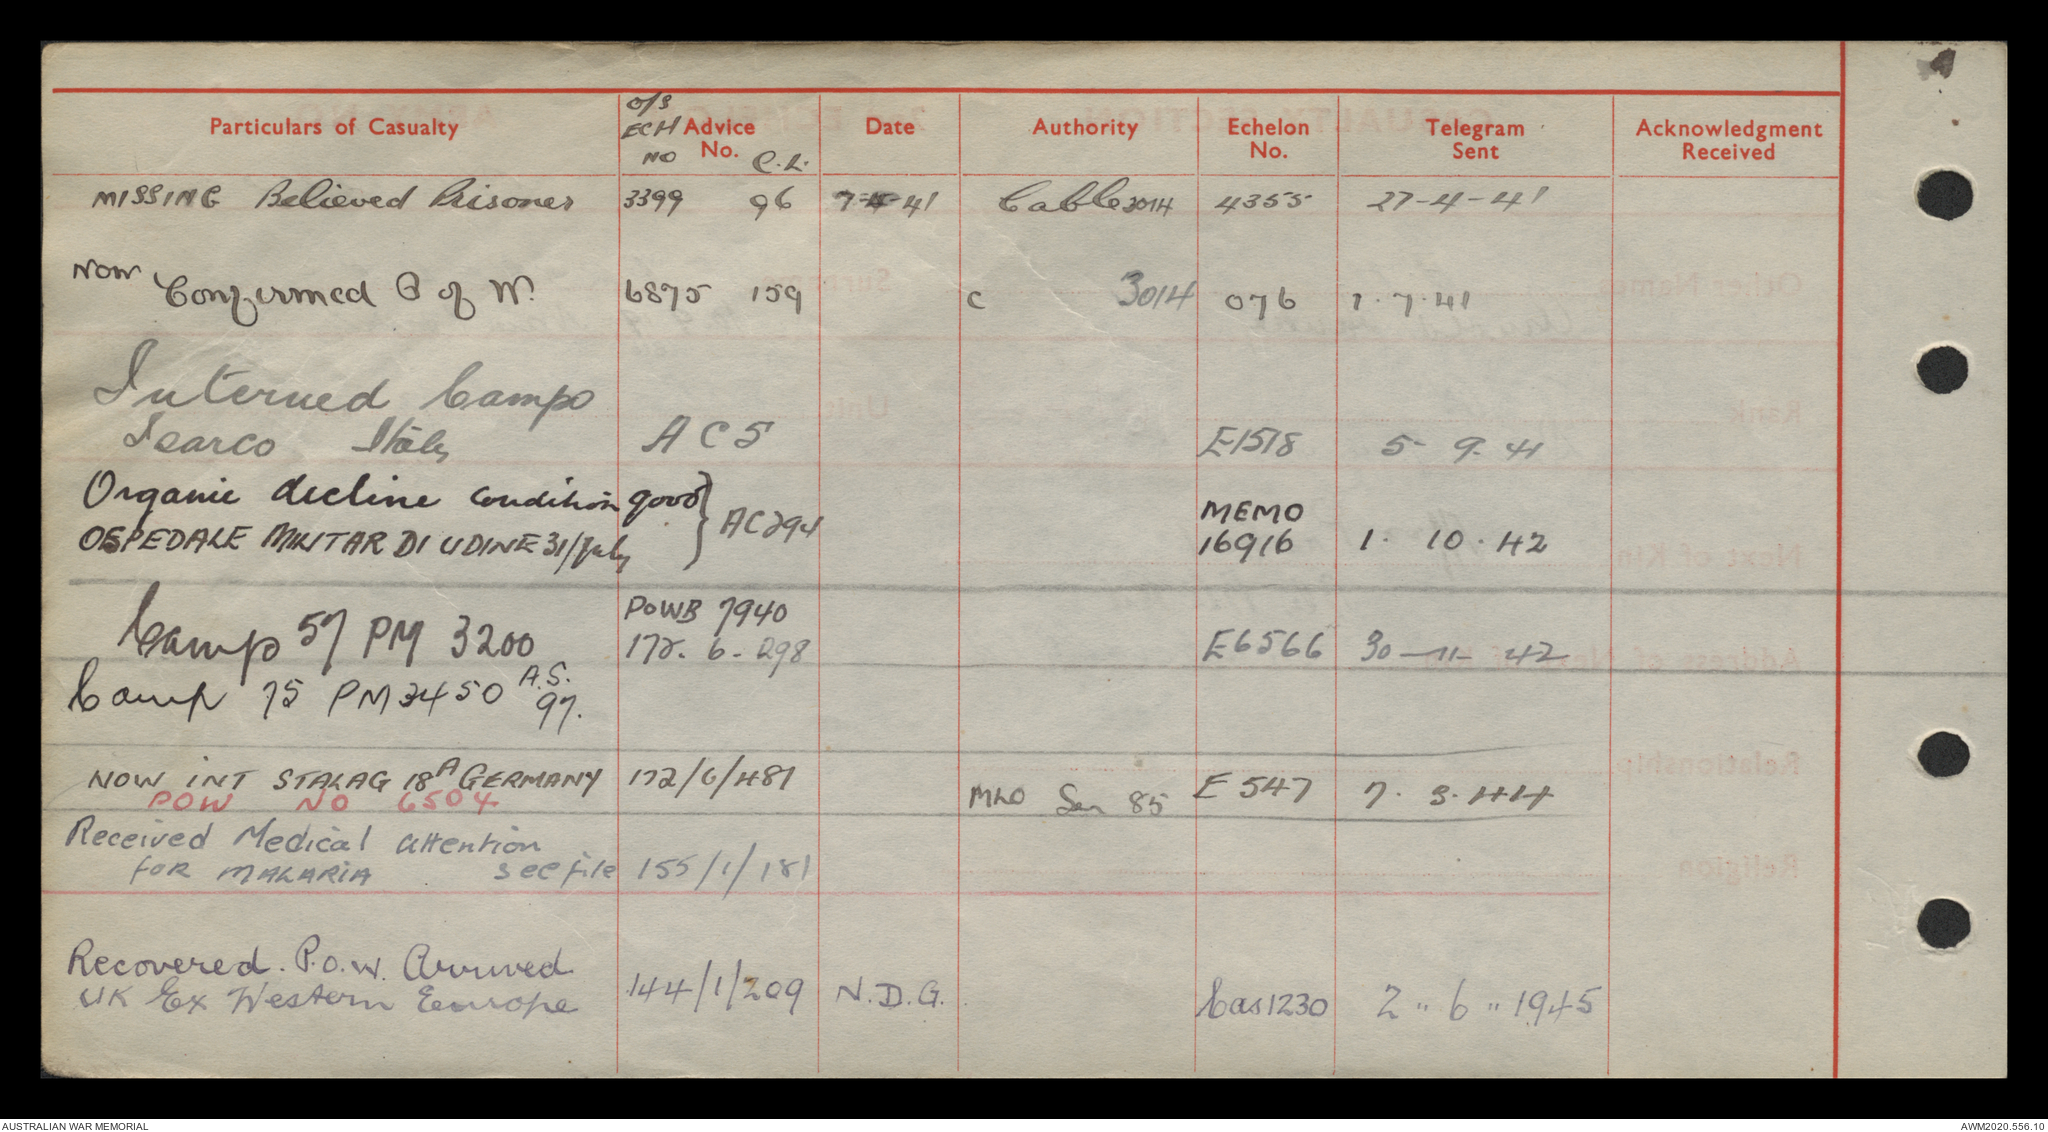 Particulars of Casualty O/S ECH NO Advice No. C.L. Date Authority Echelon No. Telegram Sent Acknowledgment Received
MISSING Believed Prisoner 3399 96 7-4-41 Cable 3014 4355 27-4-41
NOW Confirmed P of W. 6875 159 C 3014 076 1.7.41
Interned Campo
Italy A C 5 E1518 5-9.41
Organic decline condition good
OSPEDALE MILITAR DI UDINE 31/July } AC294 MEMO 16916 1.10.42
Camp 57 PM 3200 POWB 7940
172.6.298 E6566 30-11-42
Camp 75 PM 3450 A.S. 97.
NOW INT STALAG 18A GERMANY 172/6/481 E 547 7.3.44
POW NO 6504 MLO Ser 85
Received Medical attention
for MALARIA see file 155/1/181
Recovered. P.O.W. Arrived
UK Ex Western Europe 144/1/209 N.D.G. Cas1230 2"6"1945
AUSTRALIAN WAR MEMORIAL AWM2020.556.10